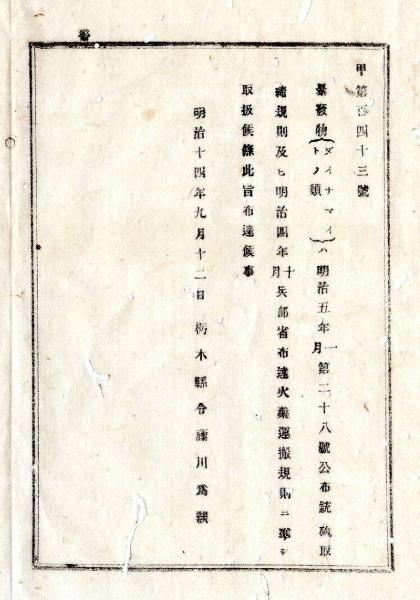 甲第百四十三號
暴發物{ダイナマイトノ類}ハ明治五年一月第二十八號公布銃砲取
締規則及ヒ明治四年十月兵部省布達火藥運搬規則ニ準シ
取扱候條此旨布達候事
明治十四年九月十二日 栃木縣令藤川爲親